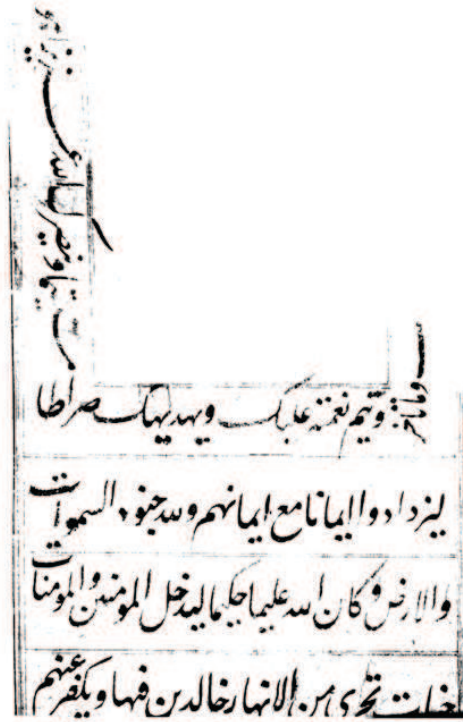 ويتم نعمته عليك ويهديك صراطا
ليزدادوا ايمانا مع ايمانهم ولله جنود السموات
والارض وكان الله عليما حكيما ليدخل المومنين والمومنات
جنات تجرى من الانهار خالدين فيها ويكفر عنهم